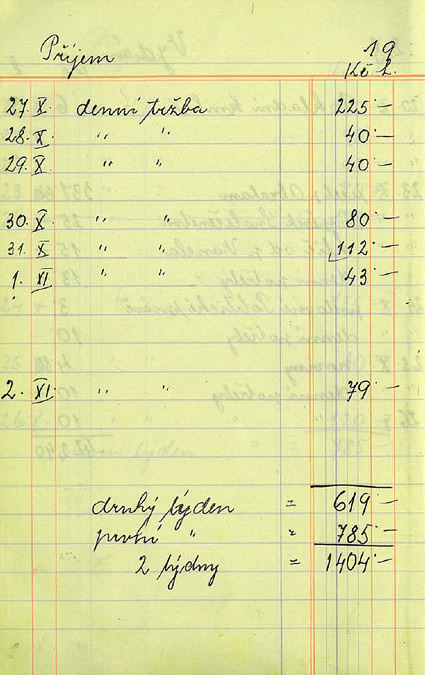 Příjem 19
Kč h.
27 X. denní tržba 225·—
28. X. " " 40·—
29. X. " " 40·—
30. X. " " 80·—
31. X. " " 112·—
1. XI " " 43·—
2. XI. " " 79·—
druhý týden = 619·—
první " = 785·—
2 týdny = 1404·—